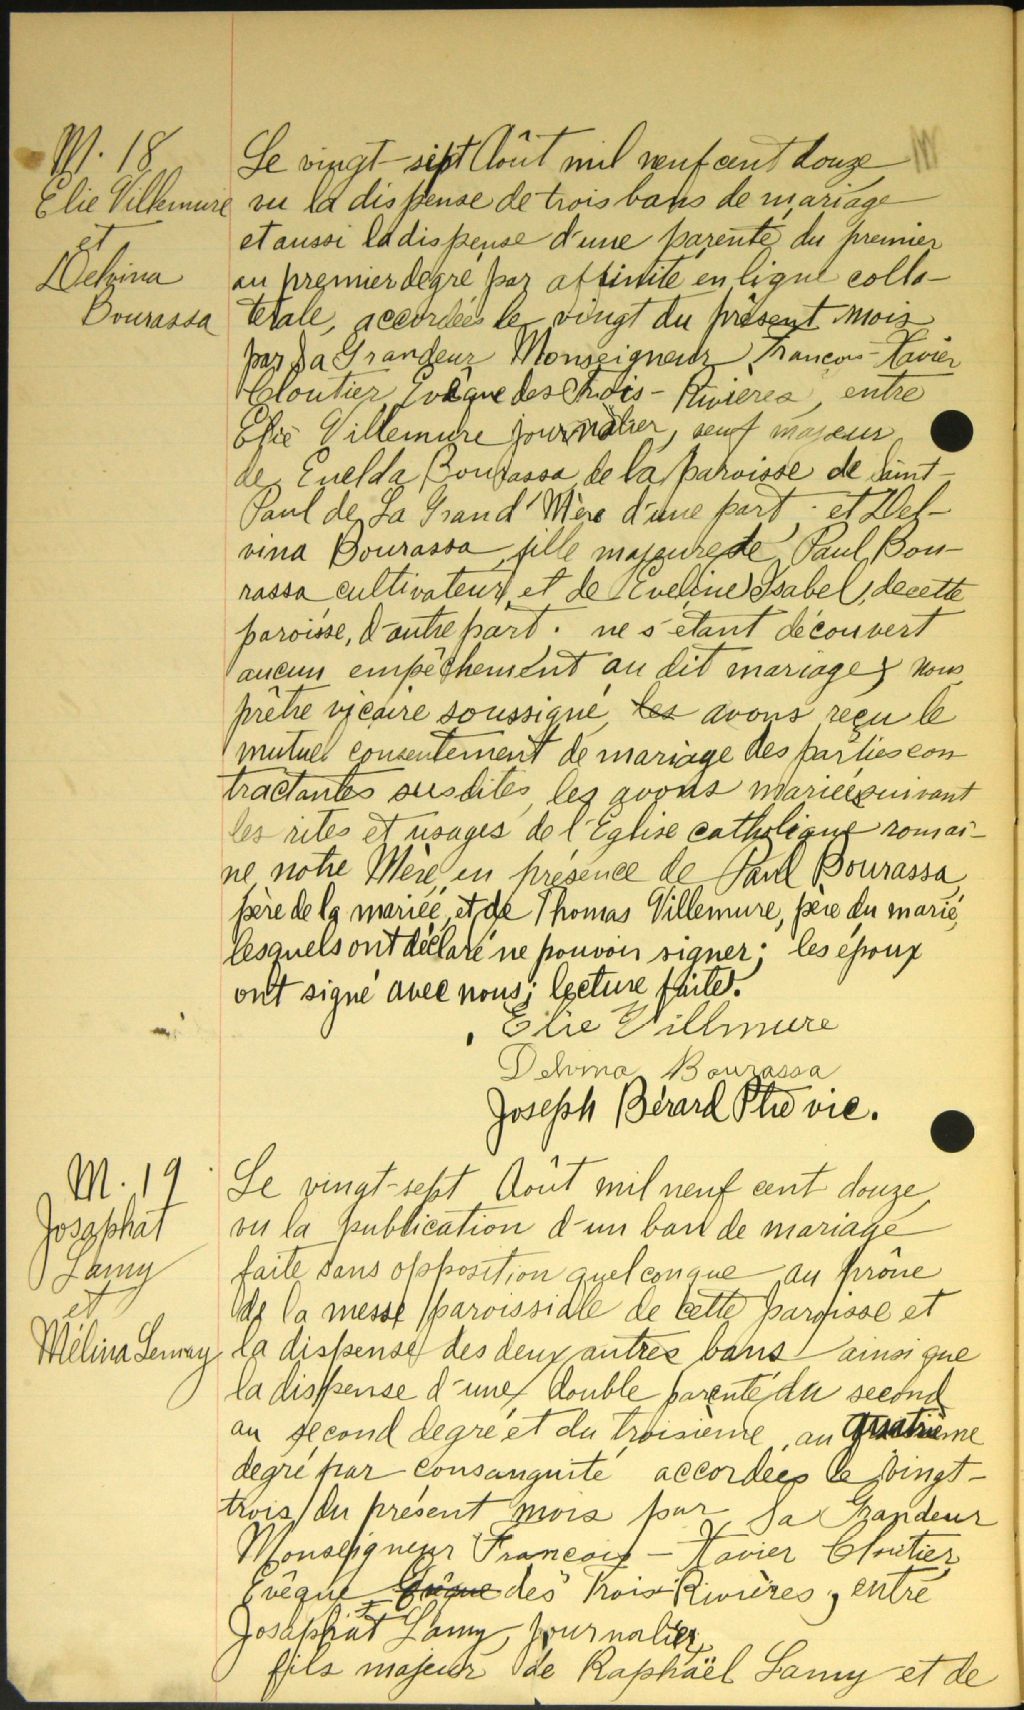 M. 18
Elie Villemure
et
Delvina
Bourassa
Le vingt-sept Août mil neuf cent douze
vu la dispense de trois bans de mariage
et aussi la dispense d'une parenté du premier
au premier degré par affinité en ligne colla-
térale, accordées le vingt du présent mois
par Sa Grandeur Monseigneur François-Xavier
Cloutier Evêque des Trois-Rivières, entre
Elie Villemure journalier, veuf majeur
de Enelda Bourassa de la paroisse de Saint-
Paul de La Grand'Mère d'une part, et Del-
vina Bourassa, fille majeure de Paul Bou-
rassa cultivateur et de Eveline Isabel, de cette
paroisse, d'autre part. ne s'étant découvert
aucun empêchement au dit mariage; nous
prêtre vicaire soussigné, les avons reçu le
mutuel consentement de mariage des parties con
tractantes susdites, les avons mariés suivant
les rites et usages de l'Eglise catholique romai-
ne notre Mère, en présence de Paul Bourassa,
père de la mariée, et de Thomas Villemure, père du marié,
lesquels ont déclaré ne pouvoir signer; les époux
ont signé avec nous; lecture faite.
Elie Villmure
Delvina Bourassa
Joseph Bérard Ptre vic.
M. 19
Josaphat
Lamy
et
Mélina Lemay
Le vingt-sept Août mil neuf cent douze,
vu la publication d'un ban de mariage
faite sans opposition quelconque au prône
de la messe paroissiale de cette paroisse et
la dispense des deux autres bans ainsi que
la dispense d'une double parenté du second
au second degré et du troisième au quatrième
degré par consanguité accordées le vingt-
trois du présent mois par Sa Grandeur
Monseigneur François-Xavier Cloutier,
Evêque Evêque des Trois Rivières, entre
Josaphat Lamy, journalier,
fils majeur de Raphaël Lamy et de